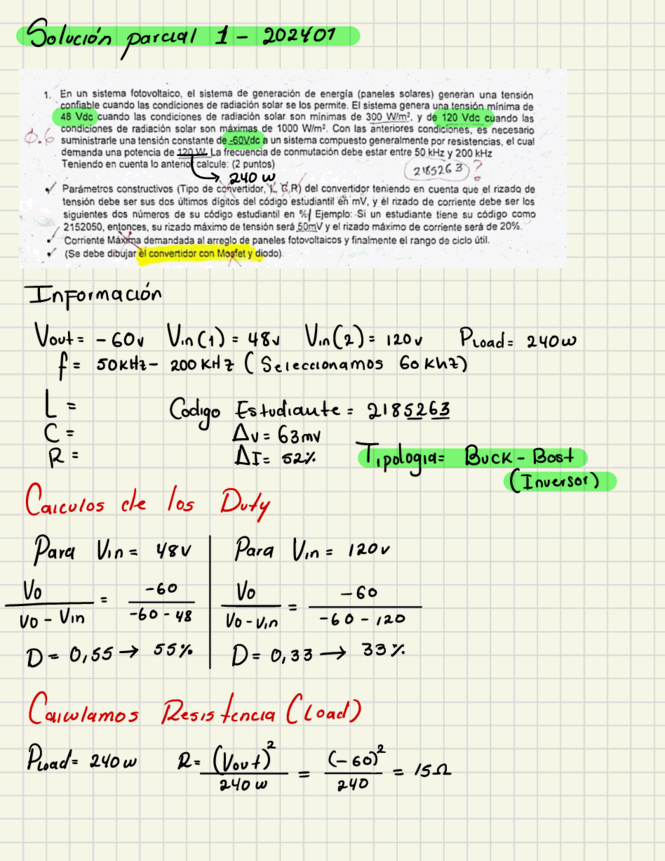 Solución parcial 1 - 202401
1. En un sistema fotovoltaico, el sistema de generación de energía (paneles solares) generan una tensión
confiable cuando las condiciones de radiación solar se los permite. El sistema genera una tensión mínima de
48 Vdc cuando las condiciones de radiación solar son mínimas de 300 W/m², y de 120 Vdc cuando las
condiciones de radiación solar son máximas de 1000 W/m². Con las anteriores condiciones, es necesario
0.6 suministrarle una tensión constante de -60Vdc a un sistema compuesto generalmente por resistencias, el cual
demanda una potencia de 120 W. La frecuencia de conmutación debe estar entre 50 kHz y 200 kHz
Teniendo en cuenta lo anterior calcule: (2 puntos)
240 w
2185263 ?
✓ Parámetros constructivos (Tipo de convertidor, L, C, R) del convertidor teniendo en cuenta que el rizado de
tensión debe ser sus dos últimos dígitos del código estudiantil en mV, y el rizado de corriente debe ser los
siguientes dos números de su código estudiantil en %/ Ejemplo: Si un estudiante tiene su código como
2152050, entonces, su rizado máximo de tensión será 50mV y el rizado máximo de corriente será de 20%.
✓ Corriente Máxima demandada al arreglo de paneles fotovoltaicos y finalmente el rango de ciclo útil.
✓ (Se debe dibujar el convertidor con Mosfet y diodo).
Información
Vout = -60v Vin(1) = 48v Vin(2) = 120v Pload = 240w
f = 50KHz - 200 KHz (Seleccionamos 60 Khz)
L =
C =
R =
Codigo Estudiante = 2185263
Δv = 63mv
ΔI = 52%
Tipologia = Buck - Bost
(Inversor)
Calculos de los Duty
Para Vin = 48v
Vo / Vo - Vin = -60 / -60 - 48
D = 0,55 → 55%
Para Vin = 120v
Vo / Vo - Vin = -60 / -60 - 120
D = 0,33 → 33%
Calculamos Resistencia (Load)
Pload = 240w R = (Vout)² / 240 w = (-60)² / 240 = 15Ω